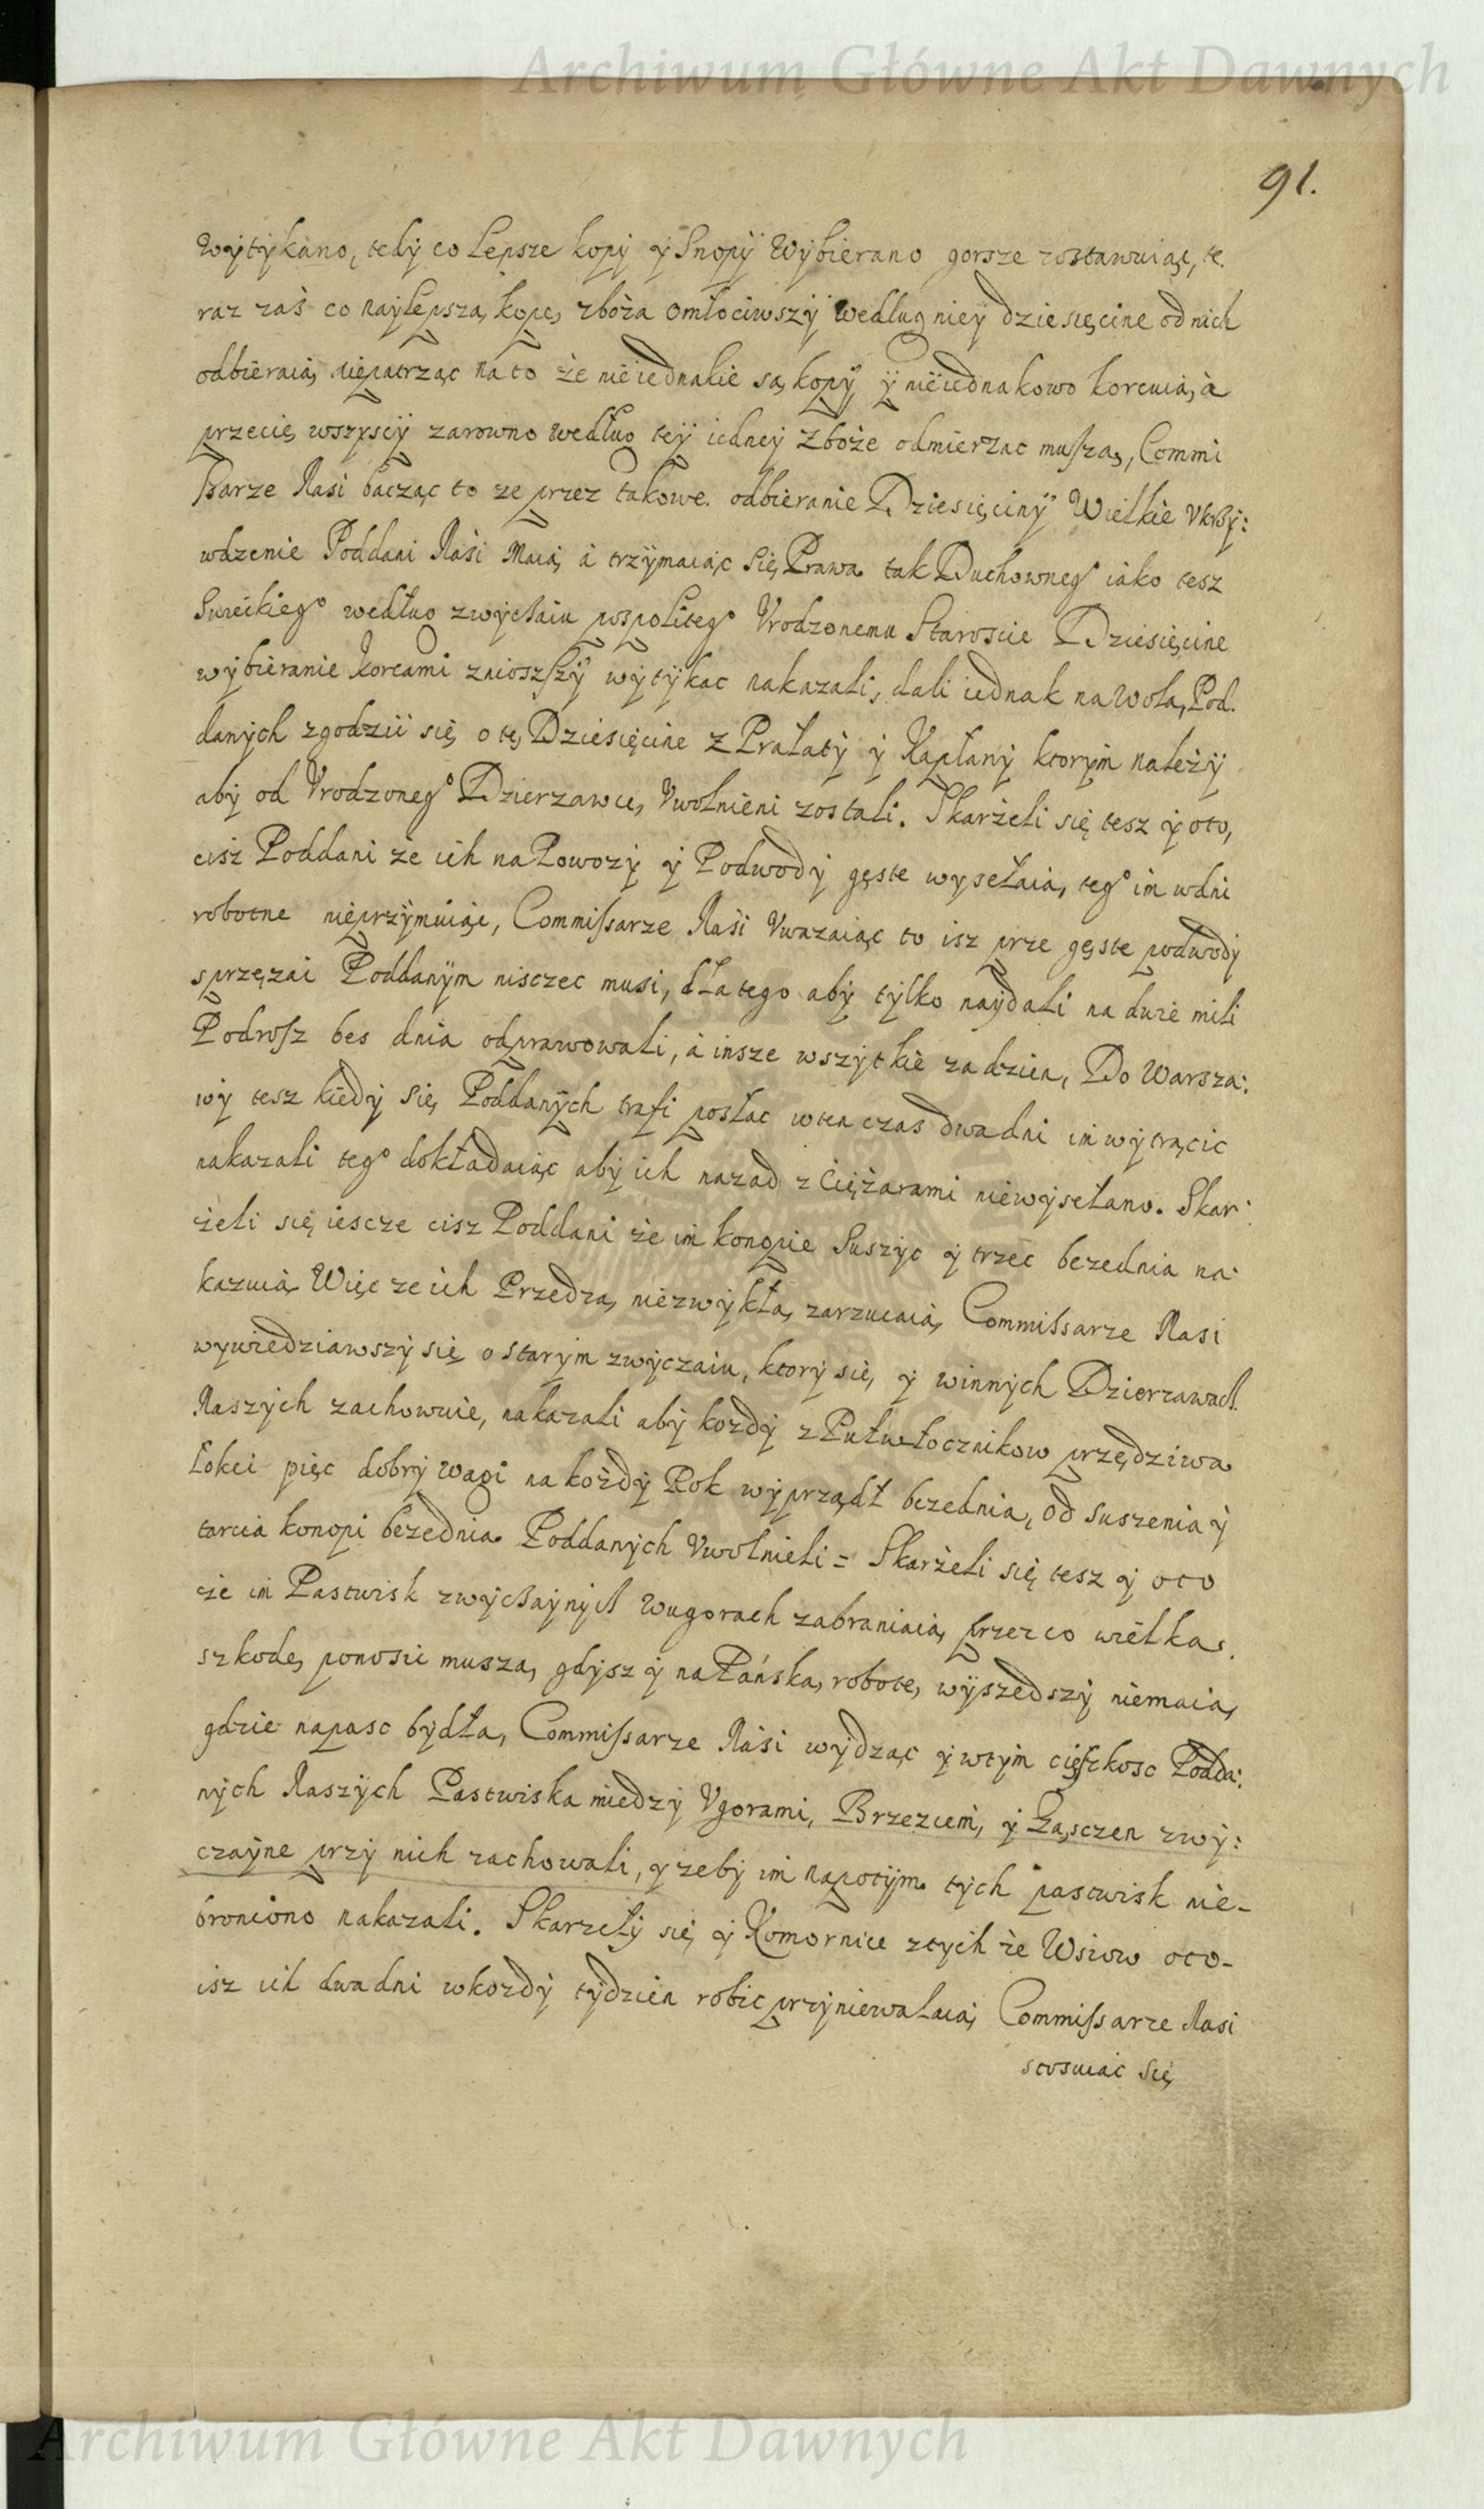 Archiwum Główne Akt Dawnych
91.
wÿtÿkano, tedÿ co Lepsze kopÿ ÿ Snopÿ Wÿbierano gorsze zostawuiąc, te.
raz zaś co naÿlepszą kopę zboża omłociwszÿ według nieÿ dziesięcinę od nich
odbieraią niepatrząc na to że nieiednakie są kopÿ ÿ nieiednakowo korcuią, à
przecię wszÿscÿ zarowno według teÿ iedneÿ zboże odmierzac muszą, Commi
ssarze Nasi bacząc to ze przez takowe odbieranie Dziesięcinÿ Wielkie Vkrzÿ:
wdzenie Poddani Nasi Maią à trzÿmaiąc Się Prawa tak Duchowneg° iako tesz
Swieckieg° według zwÿczaiu pospoliteg° Vrodzonemu Staroscie Dziesięcinę
wÿbieranie korcami znioszszÿ wÿtÿkac nakazali, dali iednak na wolą Pod.
danÿch zgodzic się o tę Dziesięcinę z Prałatÿ ÿ Kapłanÿ ktorÿm należÿ
abÿ od Vrodzoneg° Dzierzawce, Vwolnieni zostali. Skarżeli się tesz ÿ oto,
cisz Poddani że ich na Powozÿ ÿ Podwodÿ gęste wysełaią, teg° im w dni
robotne nieprzÿmuiąc, Commissarze Nasi Vwazaiąc to isz prze gęste podwodÿ
sprzęzai Poddanÿm nisczec musi, dla tego abÿ tÿlko naÿdali na dwie mili
Podrosz bes dnia odprawowali, à insze wszÿtkie za dzien, Do Warsza:
wÿ tesz kiedÿ Się Poddanÿch trafi posłac w ten czas dwa dni im wÿtrącic
nakazali teg° dokładaiąc abÿ ich nazad z Ciężarami niewÿsełano. Skar:
żeli się iescze cisz Poddani że im konopie Suszÿc ÿ trzec bezednia na:
kazuią Więc ze ich Przedzą niezwÿkłą zarzucaią Commissarze Nasi
wywiedziawszÿ się o starÿm zwÿczaiu, ktorÿ się ÿ w innÿch Dzierzawach
Naszÿch zachowuie, nakazali abÿ kozdÿ z Pułwłocznikow przędziwa
Łokci pięc dobrÿ wagi na kożdÿ Rok wÿprządł bezednia, od suszenia ÿ
tarcia konopi bezednia Poddanÿch Vwolnieli = Skarżeli się tesz ÿ oto
że im Pastwisk zwÿczaÿnÿch w ugorach zabraniaią przez co wielką
szkodę ponosic muszą, gdÿsz ÿ na Pańską robotę wÿszedszÿ niemaią
gdzie napasc bÿdła, Commissarze Nasi wÿdząc ÿ w tÿm cięszkosc Podda:
nÿch Naszÿch Pastwiska miedzÿ Vgorami, Brzezcem, ÿ Łasczen zwÿ:
czaÿne przÿ nich zachowali, ÿ zebÿ im napotÿm tÿch pastwisk nie-
broniono nakazali. Skarzełÿ się ÿ Komornice z tÿch że Wsiow oto-
isz ich dwa dni w kozdÿ tÿdzien robic przÿniewalaią Commissarze Nasi
stosuiąc Się
Archiwum Główne Akt Dawnych